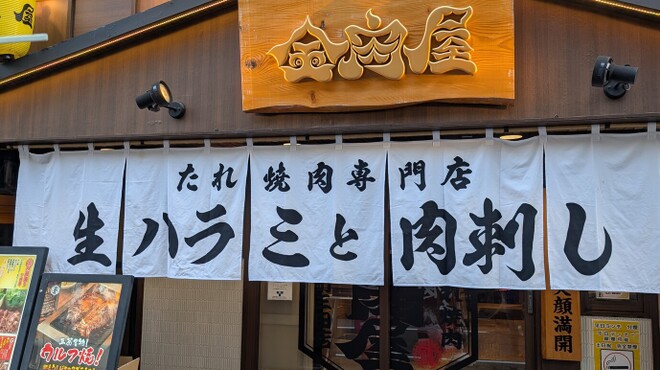 金肉屋
たれ焼肉専門店
生ハラミと肉刺し
笑顔満開
ウルフ焼!